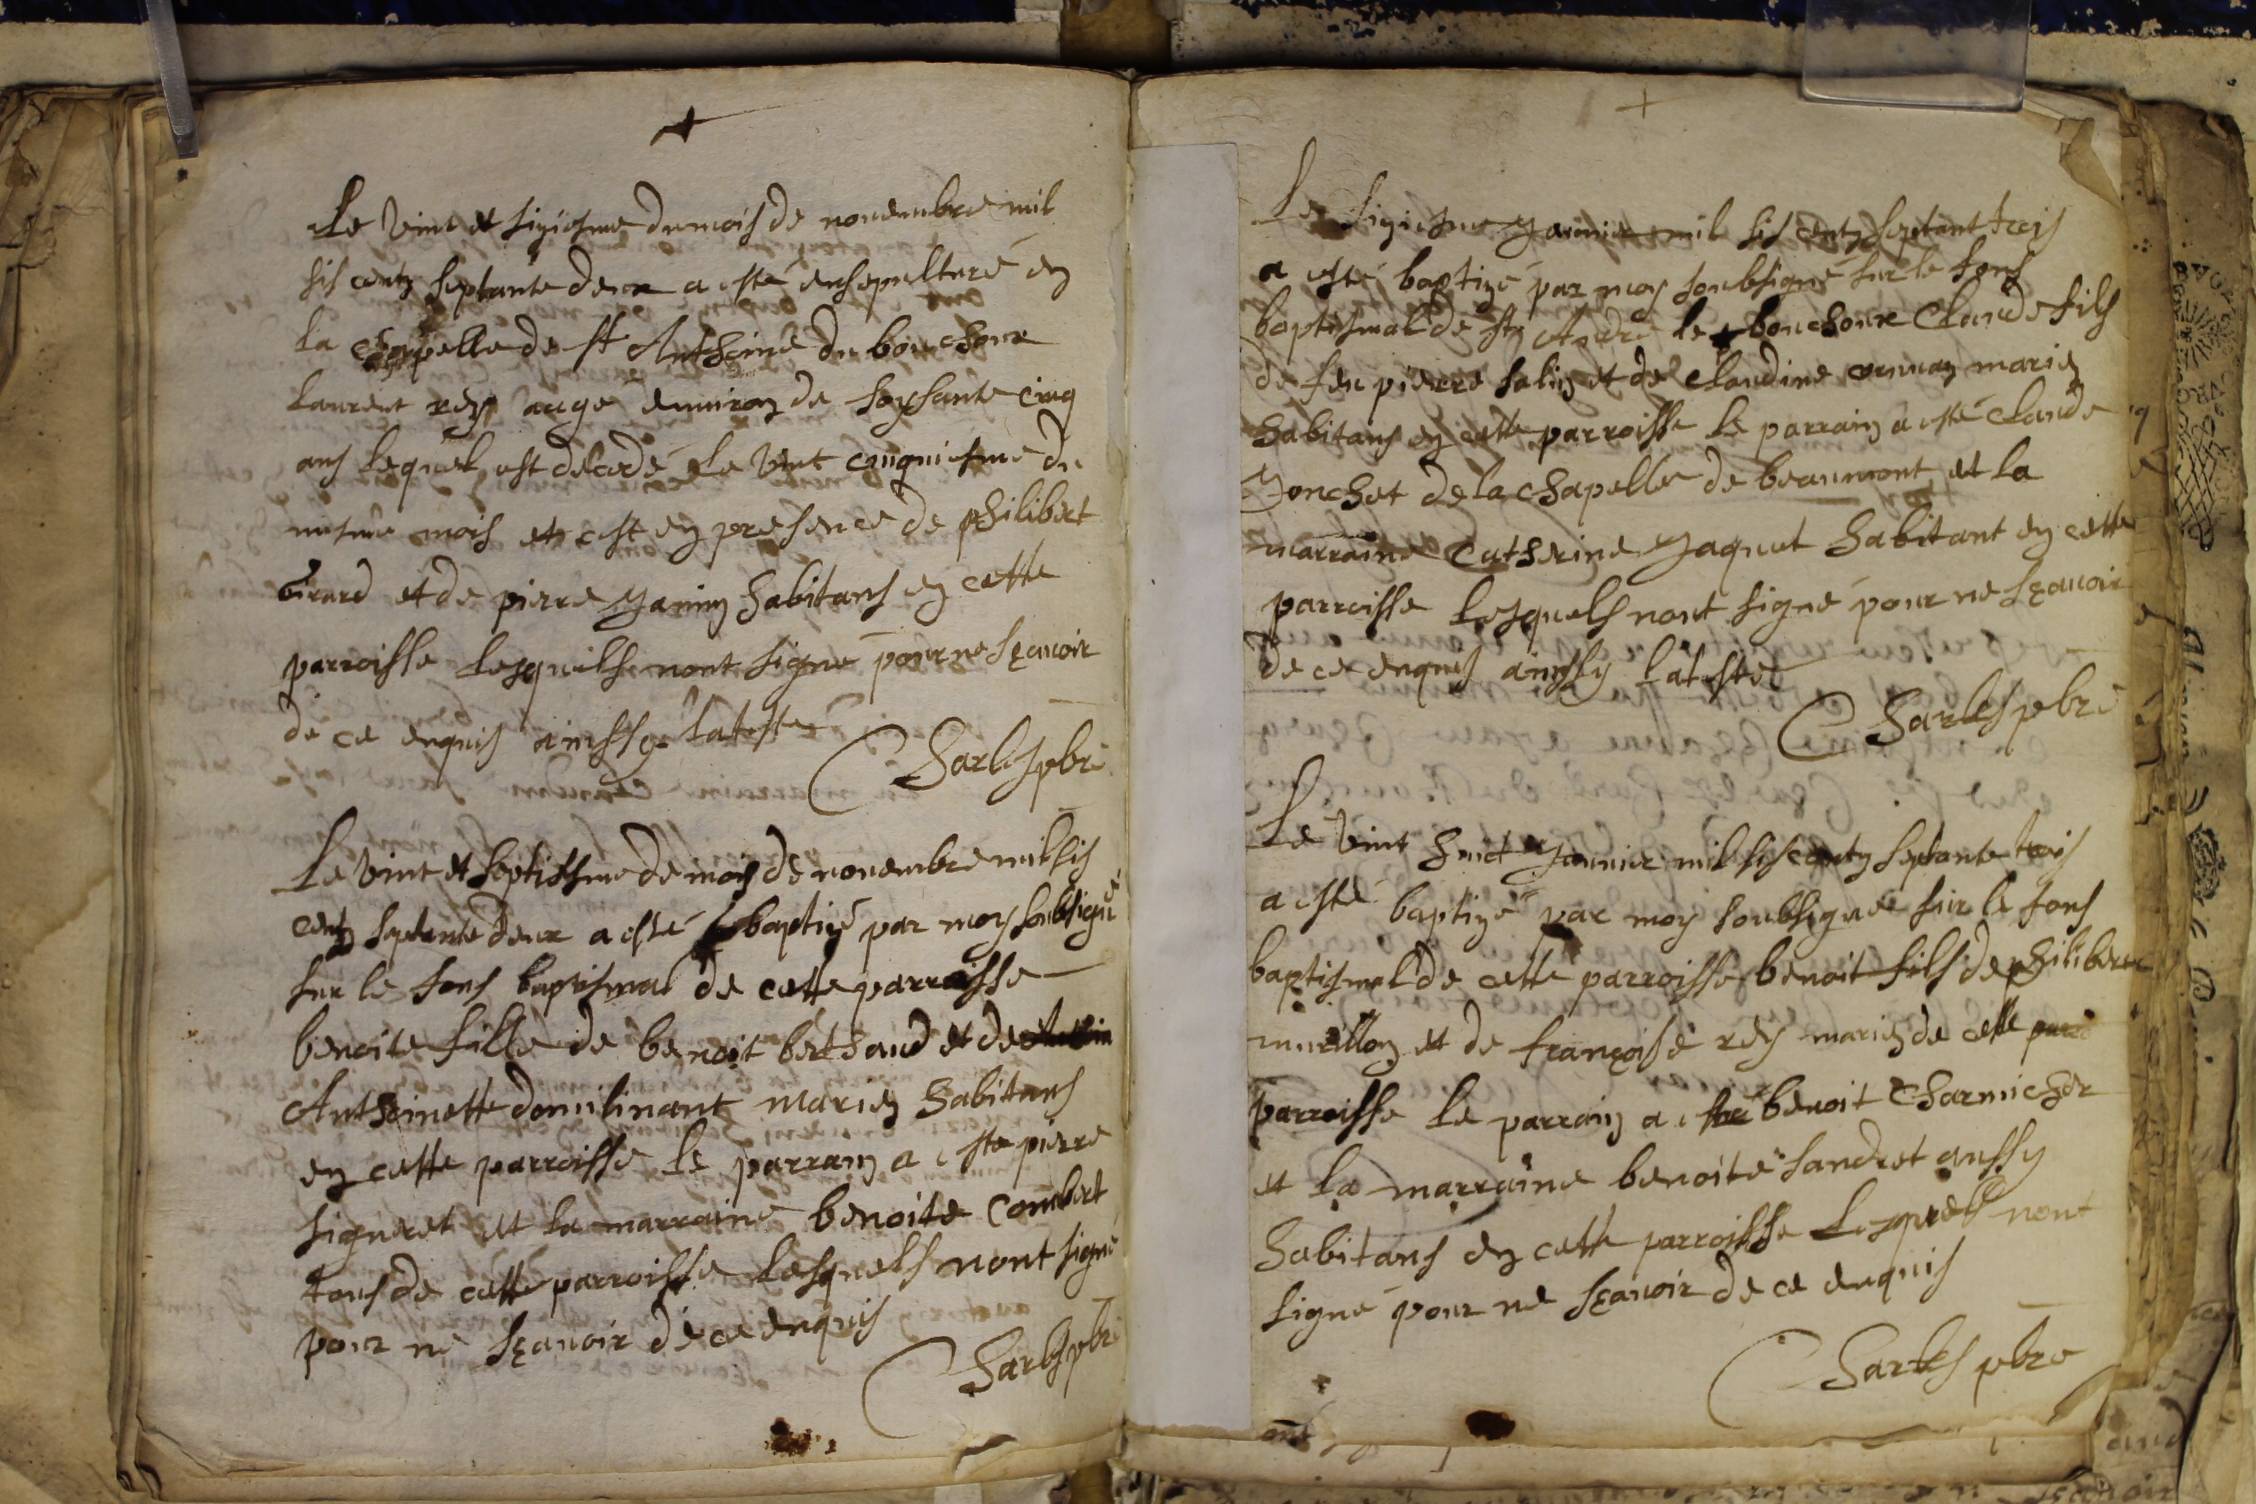 Le vint et siziesme du mois de nouembre mil
sis centz septante deux a esté ensepulturé en
la chappelle de st Anthoine du bouchoux
Laurent rey augé enuiron de soysante cinq
ans lequel est decedé le vint cinquiesme du
mesme mois et cest en presence de philibert
Girard et de pierre yanin habitans en cette
parroisse lesquelsh nont signé pour ne sçauoir
de ce enquis ainssy latteste
Charles pbre
Le vint et septiesme de mois de nouembre mil sis
centz septante deux a esté baptizé par moy soubsigné
sur le fons baptismal de cette parroisse
benoite fille de benoit berthaud et de
Anthoinette domilinant mariez habitans
en cette parroisse le parrain a esté pierre
signeret et la marraine benoite combert
tous de cette parroisse lesquels nont signé
pour ne sçauoir de ce enquis
Charles pbre
Le siziesme yanuier mil sis centz septant trois
a esté baptizé par moy soubsigné sur le fons
baptismal de st André le bouchoux Claude fils
de feu pierre salin et de claudine mariez
habitans en cette parroisse le parrain a esté claude
yonchet de la chapelle de beaumont et la
marraine catherine yaquet habitant en cette
parroisse lesquels nont signé pour ne sçauoir
de ce enquis ainssy lateste
Charles pbre
Le vint huict yanuier mil sis centz septante trois
a esté baptizé par moy soubsigné sur le fons
baptismal de cette parroisse benoit fils de philibert
murillon et de françoise rey mariez de cette
parroisse le parrain a esté benoit Charmichor
et la marraine benoite sandret aussy
habitans en cette parroisse lesquels nont
signé pour ne sçauoir de ce enquis
Charles pbre